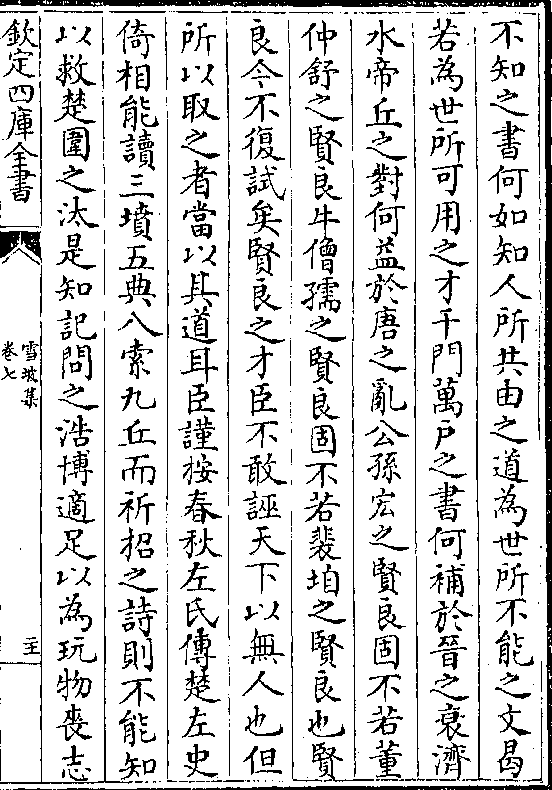 不知之書何如知人所共由之道為世所不能之文曷
若為世所可用之才千門萬戶之書何補於晉之衰濟
水帝丘之對何益於唐之亂公孫宏之賢良固不若董
仲舒之賢良牛僧孺之賢良固不若裴垍之賢良也賢
良今不復試矣賢良之才臣不敢誣天下以無人也但
所以取之者當以其道耳臣謹按春秋左氏傳楚左史
倚相能讀三墳五典八索九丘而祈招之詩則不能知
以救楚圍之汰是知記問之浩博適足以為玩物喪志
欽定四庫全書
雪坡集
卷七